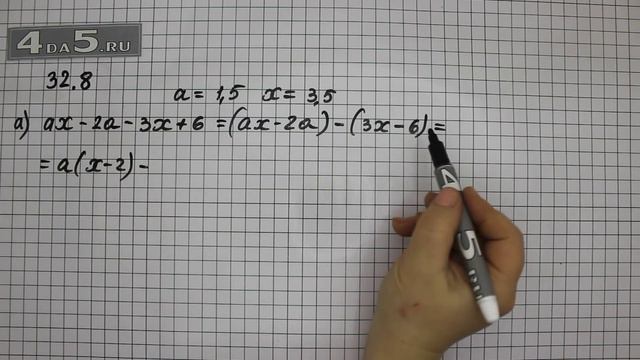 4DA5.RU
32.8
a = 1,5 x = 3,5
а) ax - 2a - 3x + 6 = (ax - 2a) - (3x - 6) =
= a(x - 2) -